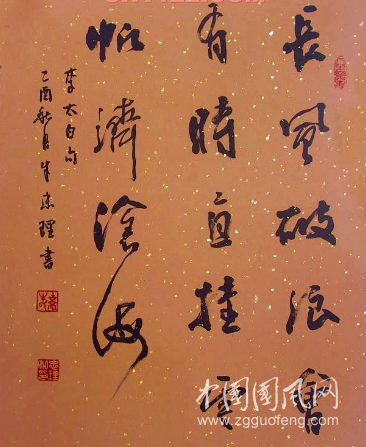 長風破浪會
有時直挂雲
帆濟滄海
李太白句
乙酉秋月朱 理書
中國國風网
www.zgguofeng.com